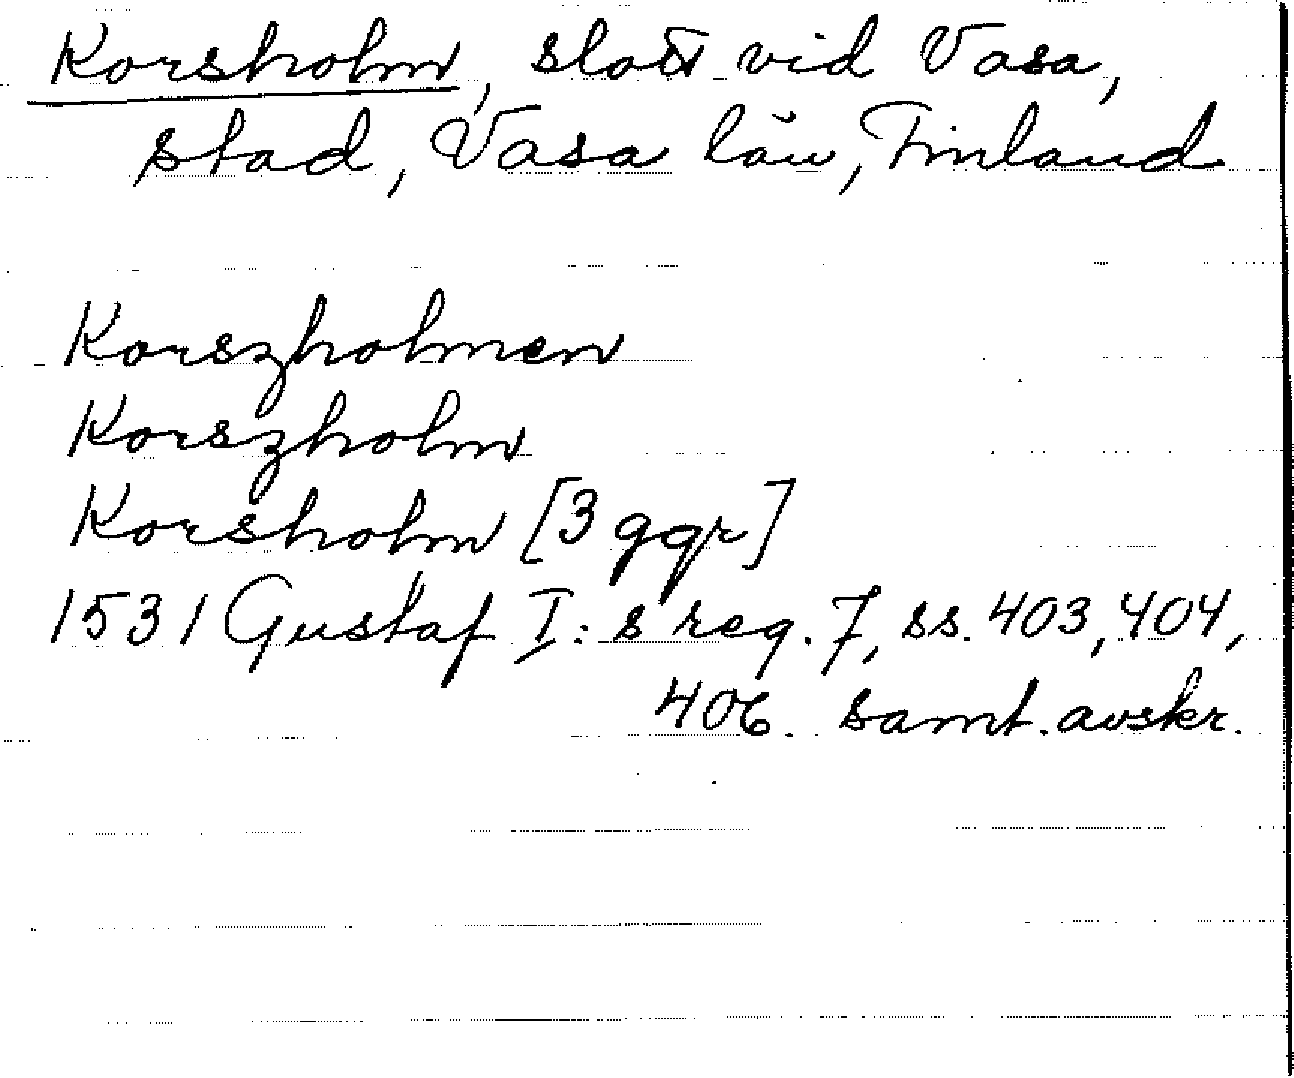 Korsholm, slott vid Vasa,
stad, Vasa län, Finland
Korszholmen
Korszholm
Korsholm [3 ggr]
1531 Gustaf I: s reg. 7, ss. 403, 404,
406. samt. avskr.